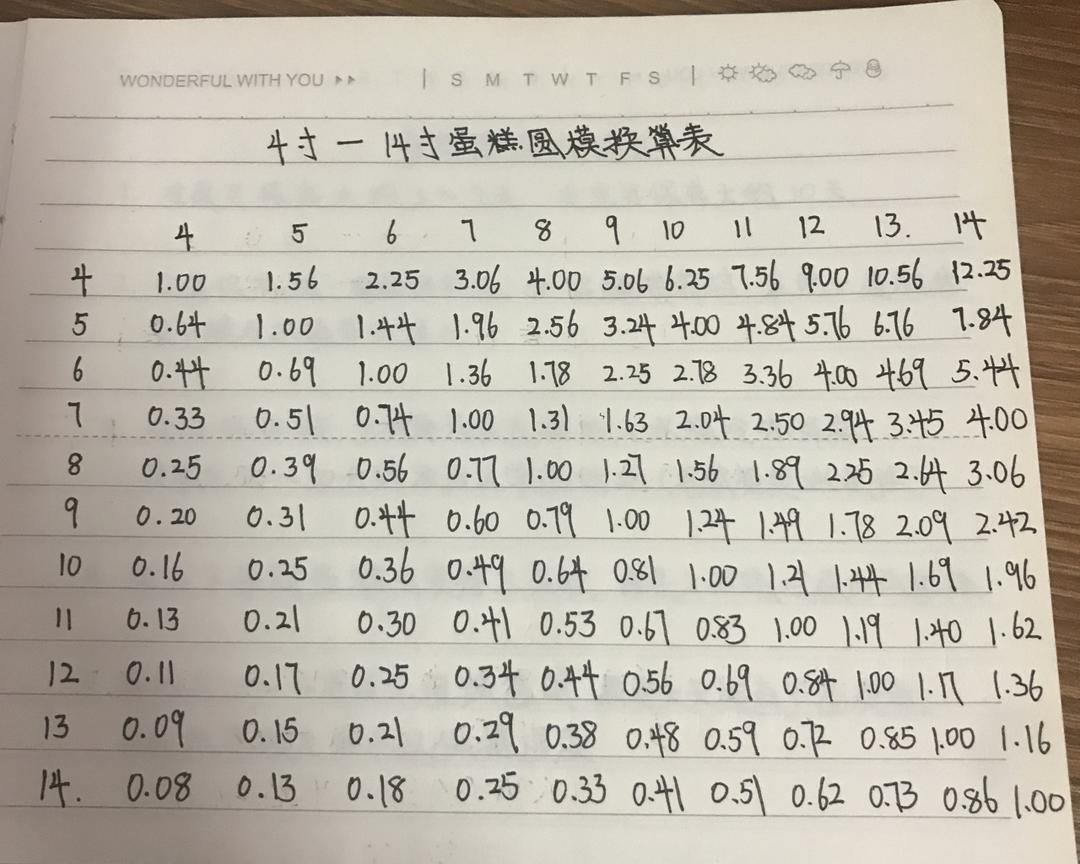 WONDERFUL WITH YOU | S M T W T F S |
4寸一14寸蛋糕圆模换算表
4 5 6 7 8 9 10 11 12 13. 14
4 1.00 1.56 2.25 3.06 4.00 5.06 6.25 7.56 9.00 10.56 12.25
5 0.64 1.00 1.44 1.96 2.56 3.24 4.00 4.84 5.76 6.76 7.84
6 0.44 0.69 1.00 1.36 1.78 2.25 2.78 3.36 4.00 4.69 5.44
7 0.33 0.51 0.74 1.00 1.31 1.63 2.04 2.50 2.94 3.45 4.00
8 0.25 0.39 0.56 0.77 1.00 1.27 1.56 1.89 2.25 2.64 3.06
9 0.20 0.31 0.44 0.60 0.79 1.00 1.24 1.49 1.78 2.09 2.42
10 0.16 0.25 0.36 0.49 0.64 0.81 1.00 1.21 1.44 1.69 1.96
11 0.13 0.21 0.30 0.41 0.53 0.67 0.83 1.00 1.19 1.40 1.62
12 0.11 0.17 0.25 0.34 0.44 0.56 0.69 0.84 1.00 1.17 1.36
13 0.09 0.15 0.21 0.29 0.38 0.48 0.59 0.72 0.85 1.00 1.16
14. 0.08 0.13 0.18 0.25 0.33 0.41 0.51 0.62 0.73 0.86 1.00